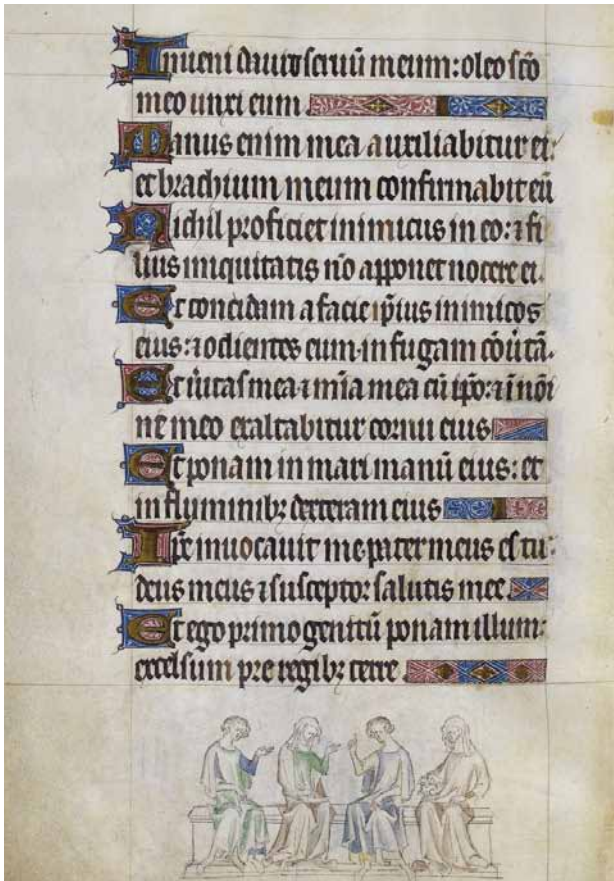 Inueni dauid seruū meum: oleo scō
meo unxi eum
Manus enim mea auxiliabitur ei:
et brachium meum confirmabit eū
Nichil proficiet inimicus in eo: ⁊ fi
lius iniquitatis nō apponet nocere ei.
Et concidam a facie ip̄ius inimicos
eius: ⁊ odientes eum in fugam cōūtā.
Et ūitas mea ⁊ mīa mea cū ip̄o: ⁊ ī nōi
ne meo exaltabitur cornu eius
Et ponam in mari manū eius: et
in fluminibꝫ dexteram eius
Ip̄e inuocauit me pater meus es tu:
deus meus ⁊ susceptor salutis mee
Et ego primogenitū ponam illum:
excelsum pre regibꝫ terre